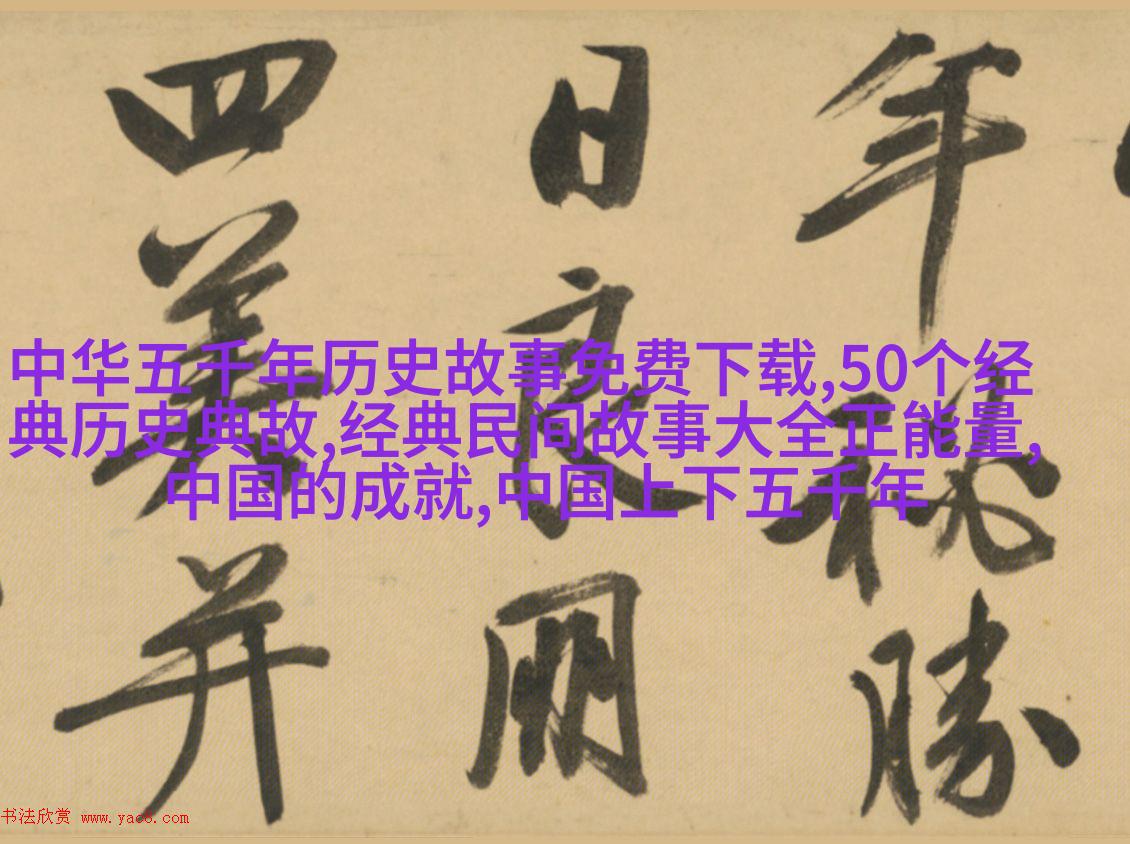 年勝
日良朋
四美并
中华五千年历史故事免费下载,50个经
典历史典故,经典民间故事大全正能量,
中国的成就,中国上下五千年
书法欣赏 www.yac8.com